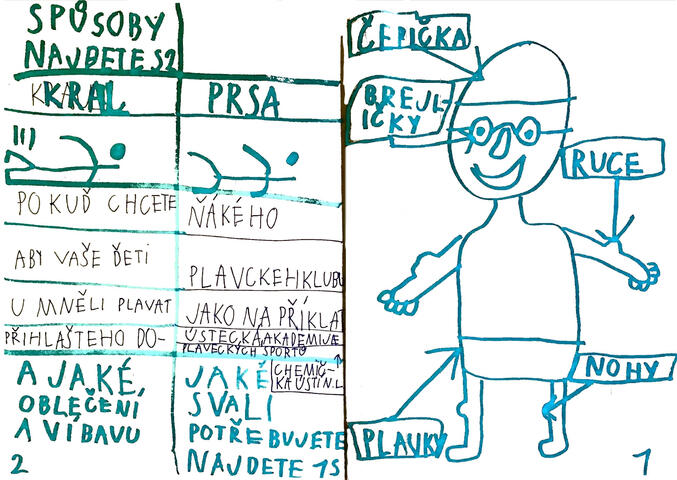 SPŮSOBY
NAJDETE S2
KRAL
PRSA
POKUĎ CHCETE
ŇÁKÉHO
ABY VAŠE ĎETI
PLAVCKEHKLUBU
U MNĚLI PLAVAT
JAKO NA PŘÍKLA
PŘIHLAŠTEHO DO-
ÚSTECKÁ AKADEMIJE
PLAVECKÝCH SPORTŮ
CHEMIČ-
KA ÚSTÍ N.L
A JAKÉ,
OBLEČENÍ
A VÍBAVU
JAKÉ
SVALI
POTŘEBUJETE
NAJDETE 1S
2
ČEPIČKA
BREJL-
IČKY
RUCE
NOHY
PLAVKY
1